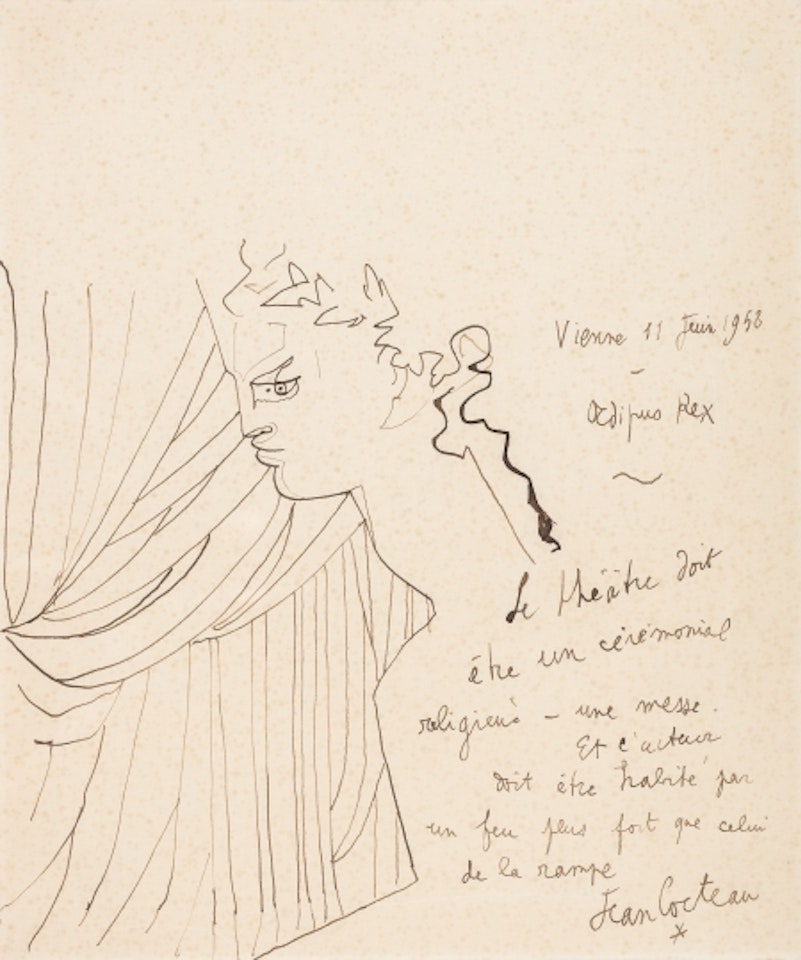 Vienne 11 Juin 1958
–
Œdipus Rex
Le théâtre doit
être un cérémonial
religieux – une messe.
Et l'acteur
doit être habité par
un feu plus fort que celui
de la rampe
Jean Cocteau
*